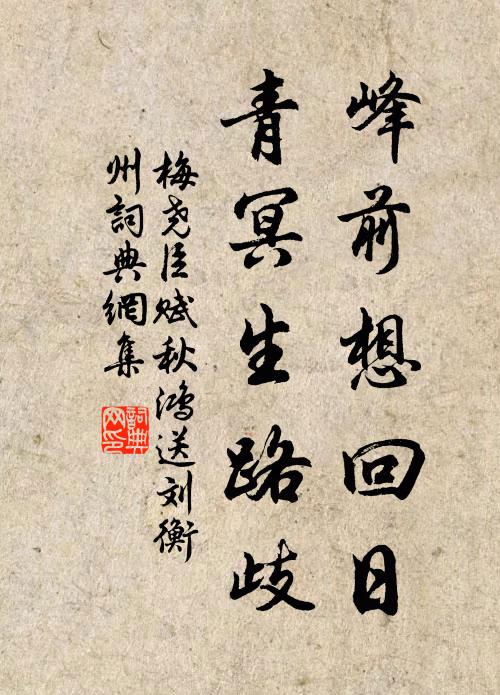 峰前想回日
青冥生路歧
梅尧臣赋秋鸿送刘衡
州詞典網集
詞典网印